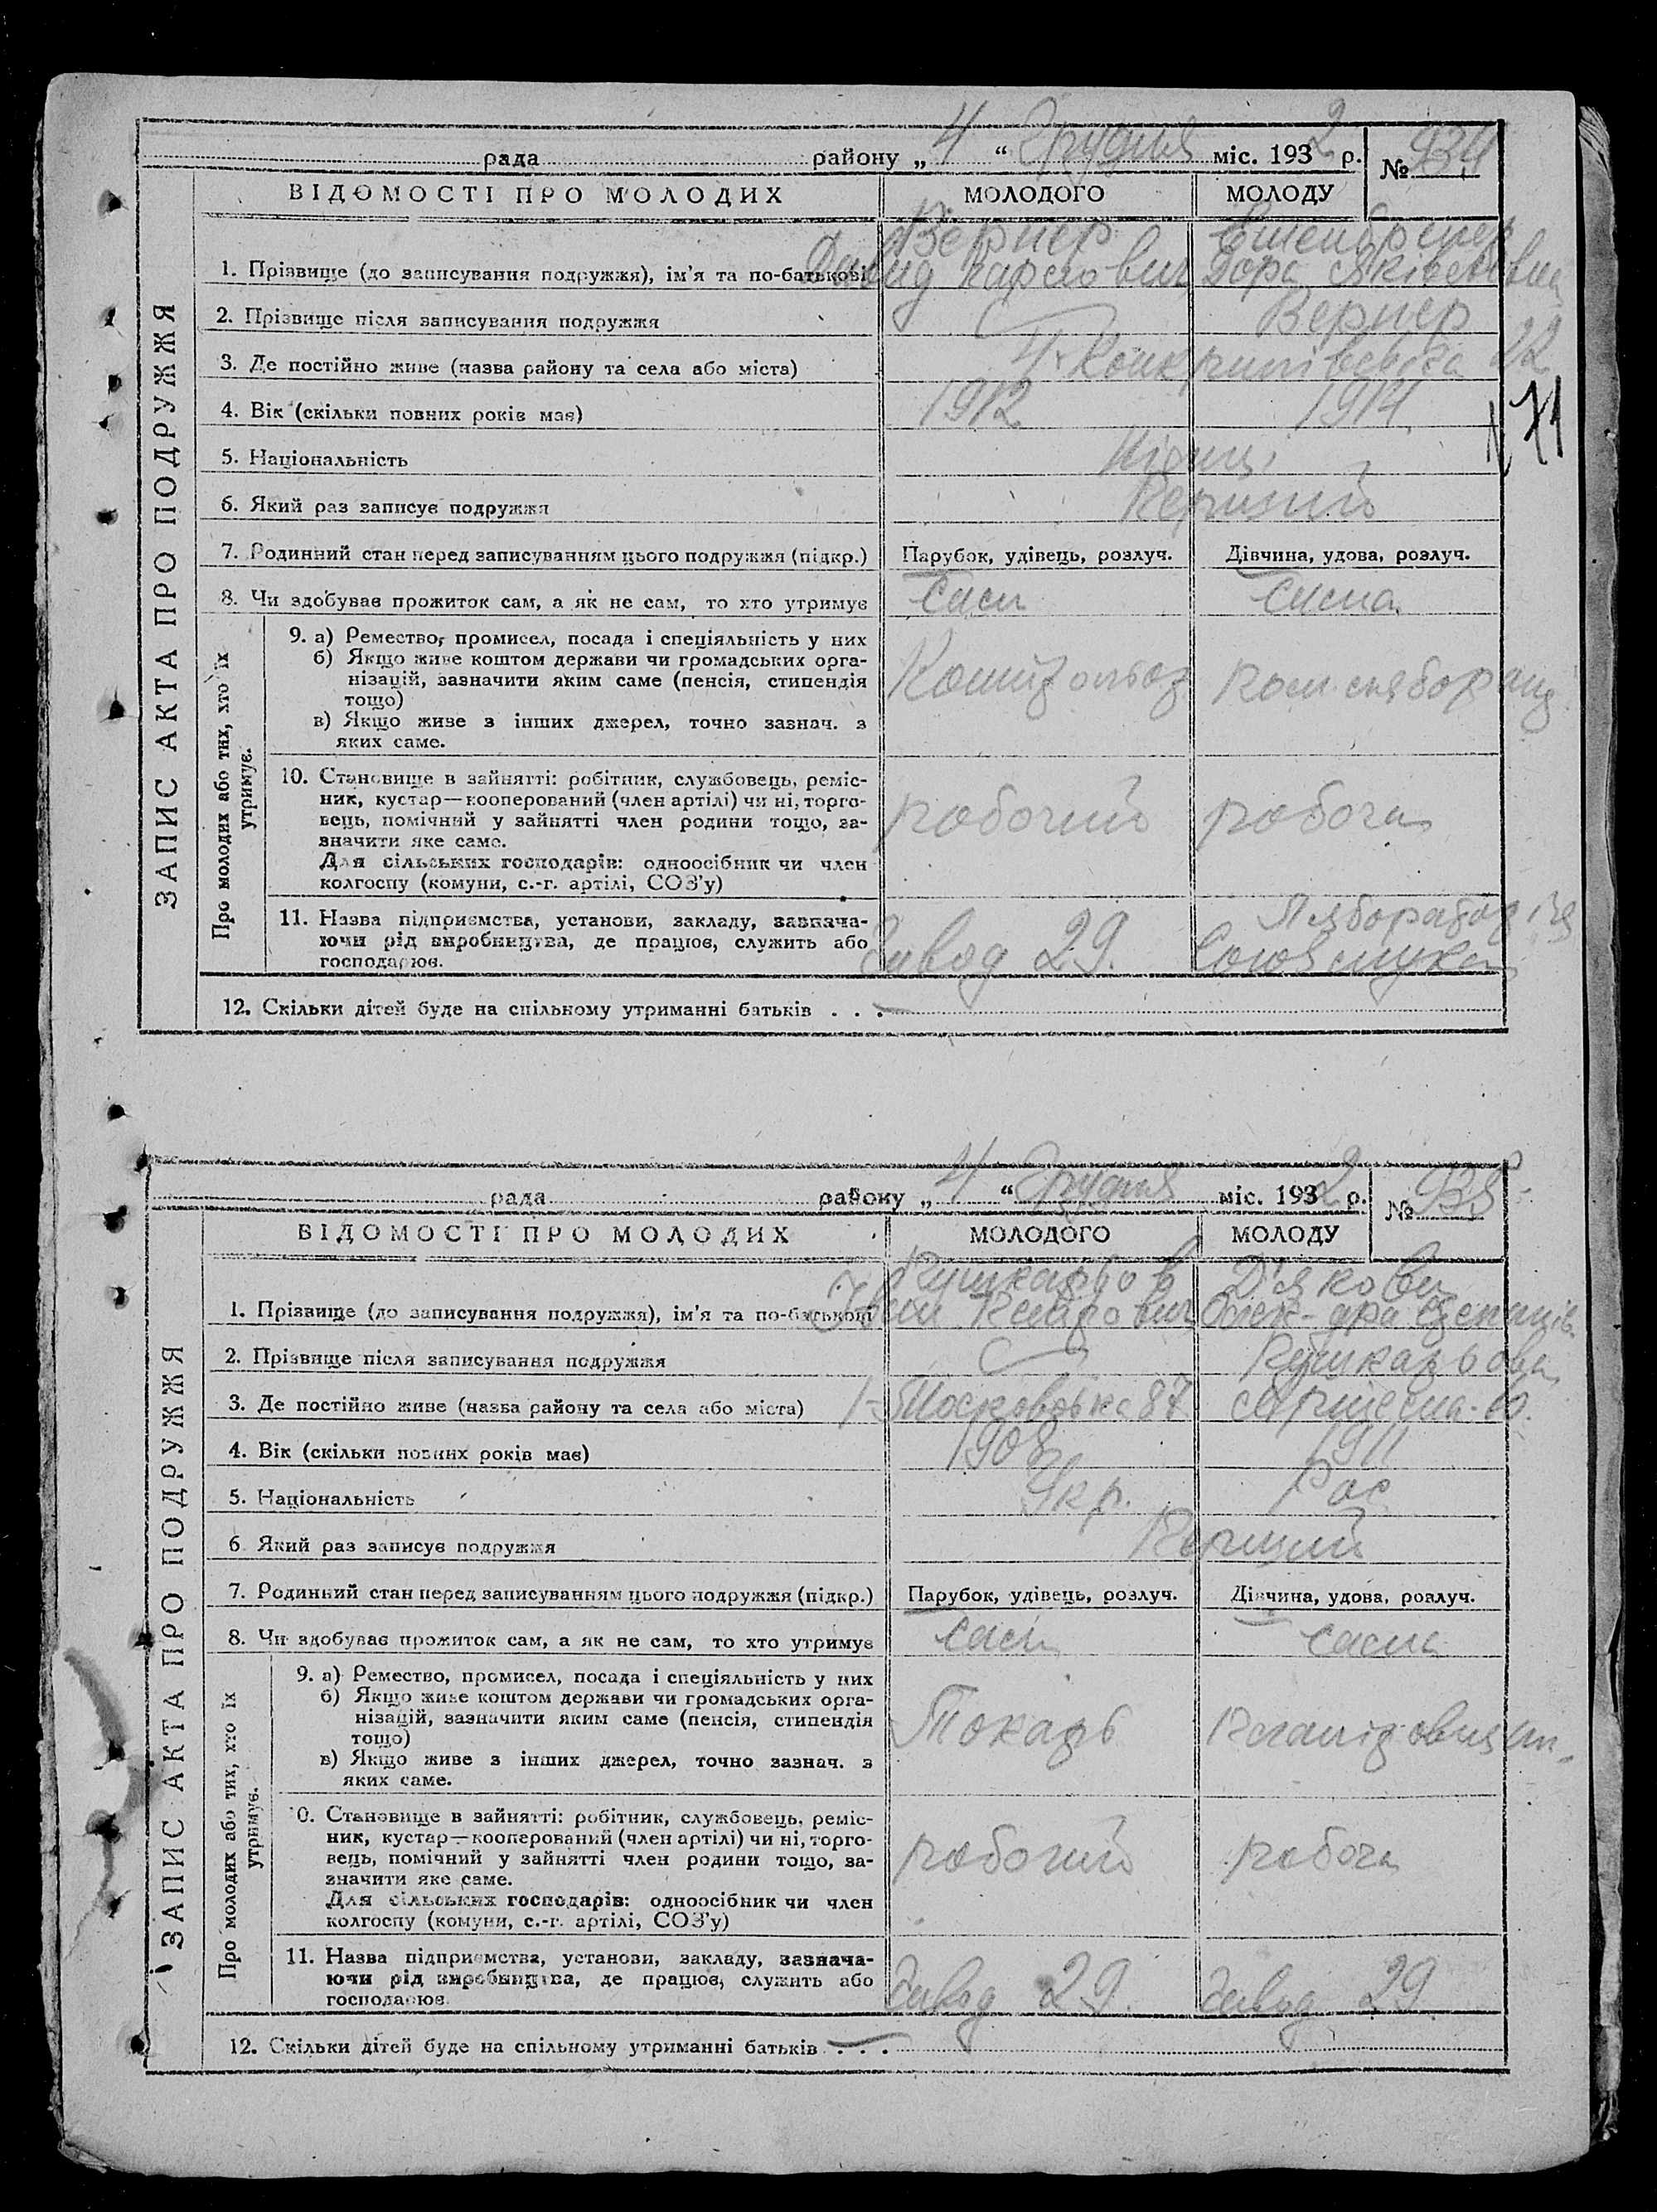 рада района „ 4 “ Грудня міс. 1932 р. № 934
ВІДОМОСТІ ПРО МОЛОДИХ МОЛОДОГО МОЛОДУ
ЗАПИС АКТА ПРО ПОДРУЖЖЯ
Вернер
1. Прізвище (до записування подружжя), ім'я та по-батькові Давид Карлович Дора Яківлевна
2. Прізвище після записування подружжя Вернер
3. Де постійно живе (назва району та села або міста) 22
4. Вік (скільки повних років має) 1912 1914
71
5. Національність Німці
6. Який раз записує подружжя Перший
7. Родинний стан перед записуванням цього подружжя (підкр.) Парубок, удівець, розлуч. Дівчина, удова, розлуч.
8. Чи здобуває прожиток сам, а як не сам, то хто утримує Сам Сама
Про молодих або тих, хто їх утримує.
9. а) Ремество, промисел, посада і спеціяльність у них
б) Якщо живе коштом держави чи громадських орга-
нізацій, зазначити яким саме (пенсія, стипендія
тощо)
в) Якщо живе з інших джерел, точно зазнач. з
яких саме.
10. Становище в зайнятті: робітник, службовець, реміс-
ник, кустар—кооперований (член артілі) чи ні, торго-
вець, помічний у зайнятті член родини тощо, за-
значити яке саме. робочий робоча
Для сільських господарів: одноосібник чи член
колгоспу (комуни, с.-г. артілі, СОЗ'у)
11. Назва підприємства, установи, закладу, зазнача-
ючи рід виробництва, де працює, служить або
господарює. Завод 29.
12. Скільки дітей буде на спільному утриманні батьків . . .
рада району „ 4 “ Грудня міс. 1932 р. № 935
ВІДОМОСТІ ПРО МОЛОДИХ МОЛОДОГО МОЛОДУ
ЗАПИС АКТА ПРО ПОДРУЖЖЯ
Пушкарьов Д'якова
1. Прізвище (до записування подружжя), ім'я та по-батькові Іван Петрович Олек-дра Степанів.
2. Прізвище після записування подружжя Пушкарьова
3. Де постійно живе (назва району та села або міста) Московська 87
4. Вік (скільки повних років має) 1908 1911
5. Національність Укр. Рос
6 Який раз записує подружжя Перший
7. Родинний стан перед записуванням цього подружжя (підкр.) Парубок, удівець, розлуч. Дівчина, удова, розлуч.
8. Чи здобуває прожиток сам, а як не сам, то хто утримує Сам Сама
Про молодих або тих, хто їх утримує.
9. а) Ремество, промисел, посада і спеціяльність у них
б) Якщо живе коштом держави чи громадських орга-
нізацій, зазначити яким саме (пенсія, стипендія
тощо) Токарь
в) Якщо живе з інших джерел, точно зазнач. з
яких саме.
0. Становище в зайнятті: робітник, службовець, реміс-
ник, кустар—кооперований (член артілі) чи ні, торго-
вець, помічний у зайнятті член родини тощо, за-
значити яке саме. робочий робоча
Для сільських господарів: одноосібник чи член
колгоспу (комуни, с.-г. артілі, СОЗ'у)
11. Назва підприємства, установи, закладу, зазнача-
ючи рід виробництва, де працює, служить або
господарює Завод 29. Завод 29
12. Скільки дітей буде на спільному утриманні батьків . . .